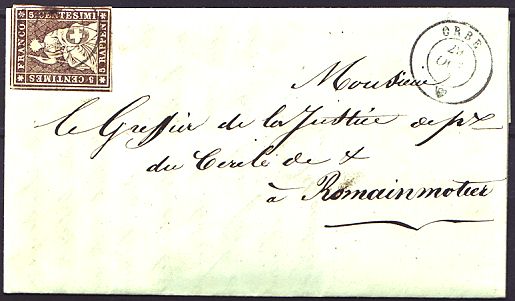 5. CENTESIMI
FRANCO
5 RAPPEN
5 CENTIMES
ORBE
Monsieur
le Greffier de la Justice de px
du Cercle de &
à Romainmotier